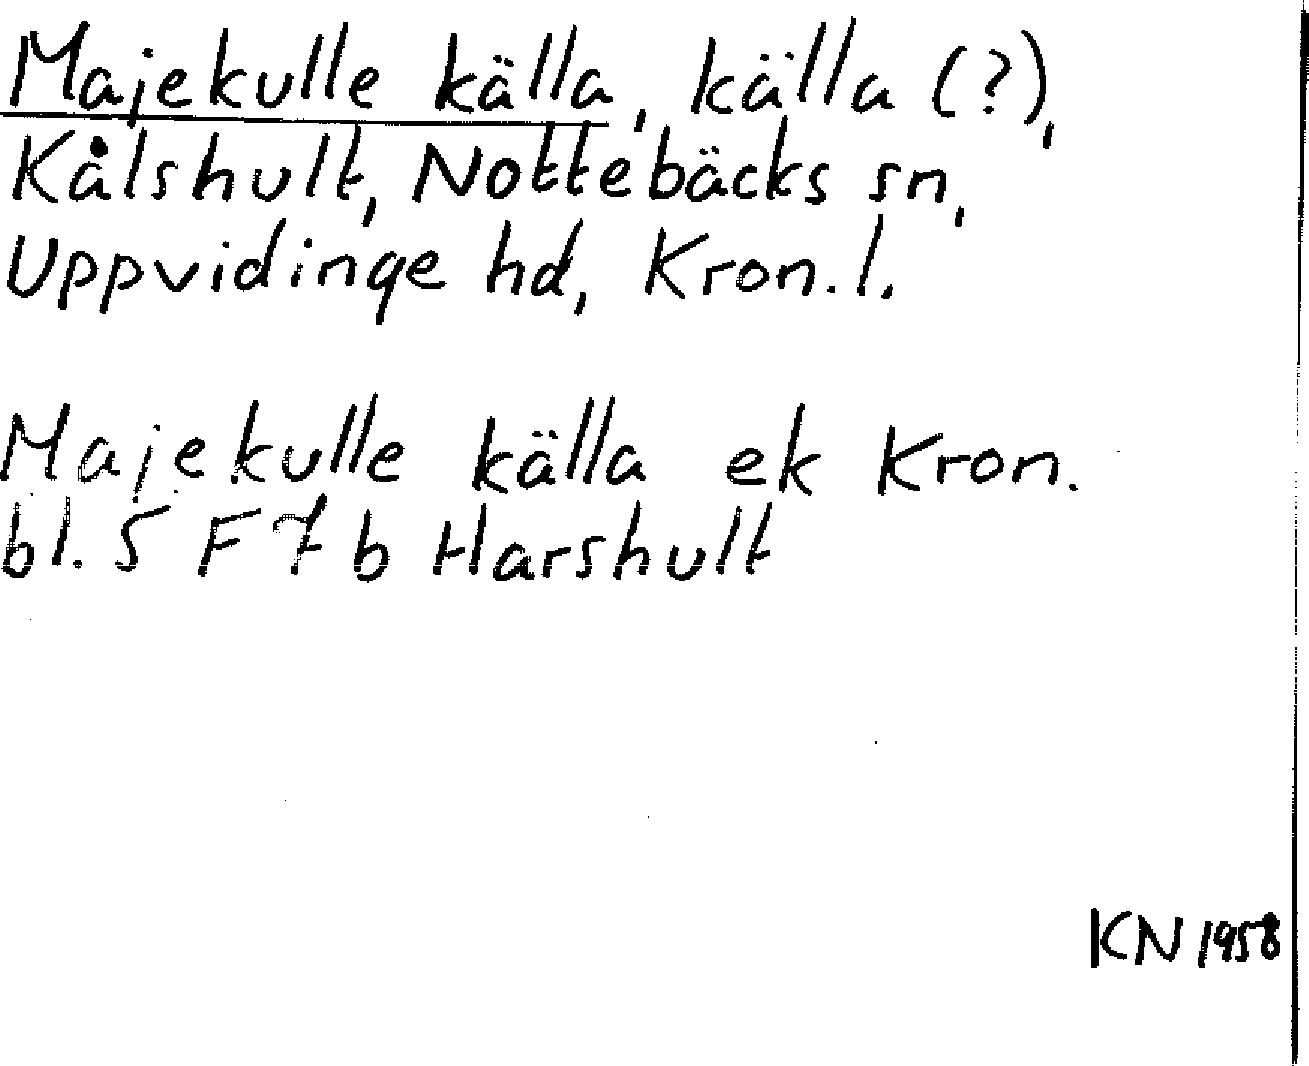 Majekulle källa, källa (?),
Kålshult, Nottebäcks sn,
Uppvidinge hd, Kron. l.
Majekulle källa ek Kron.
bl. 5 F 7 b Harshult
KN 1958